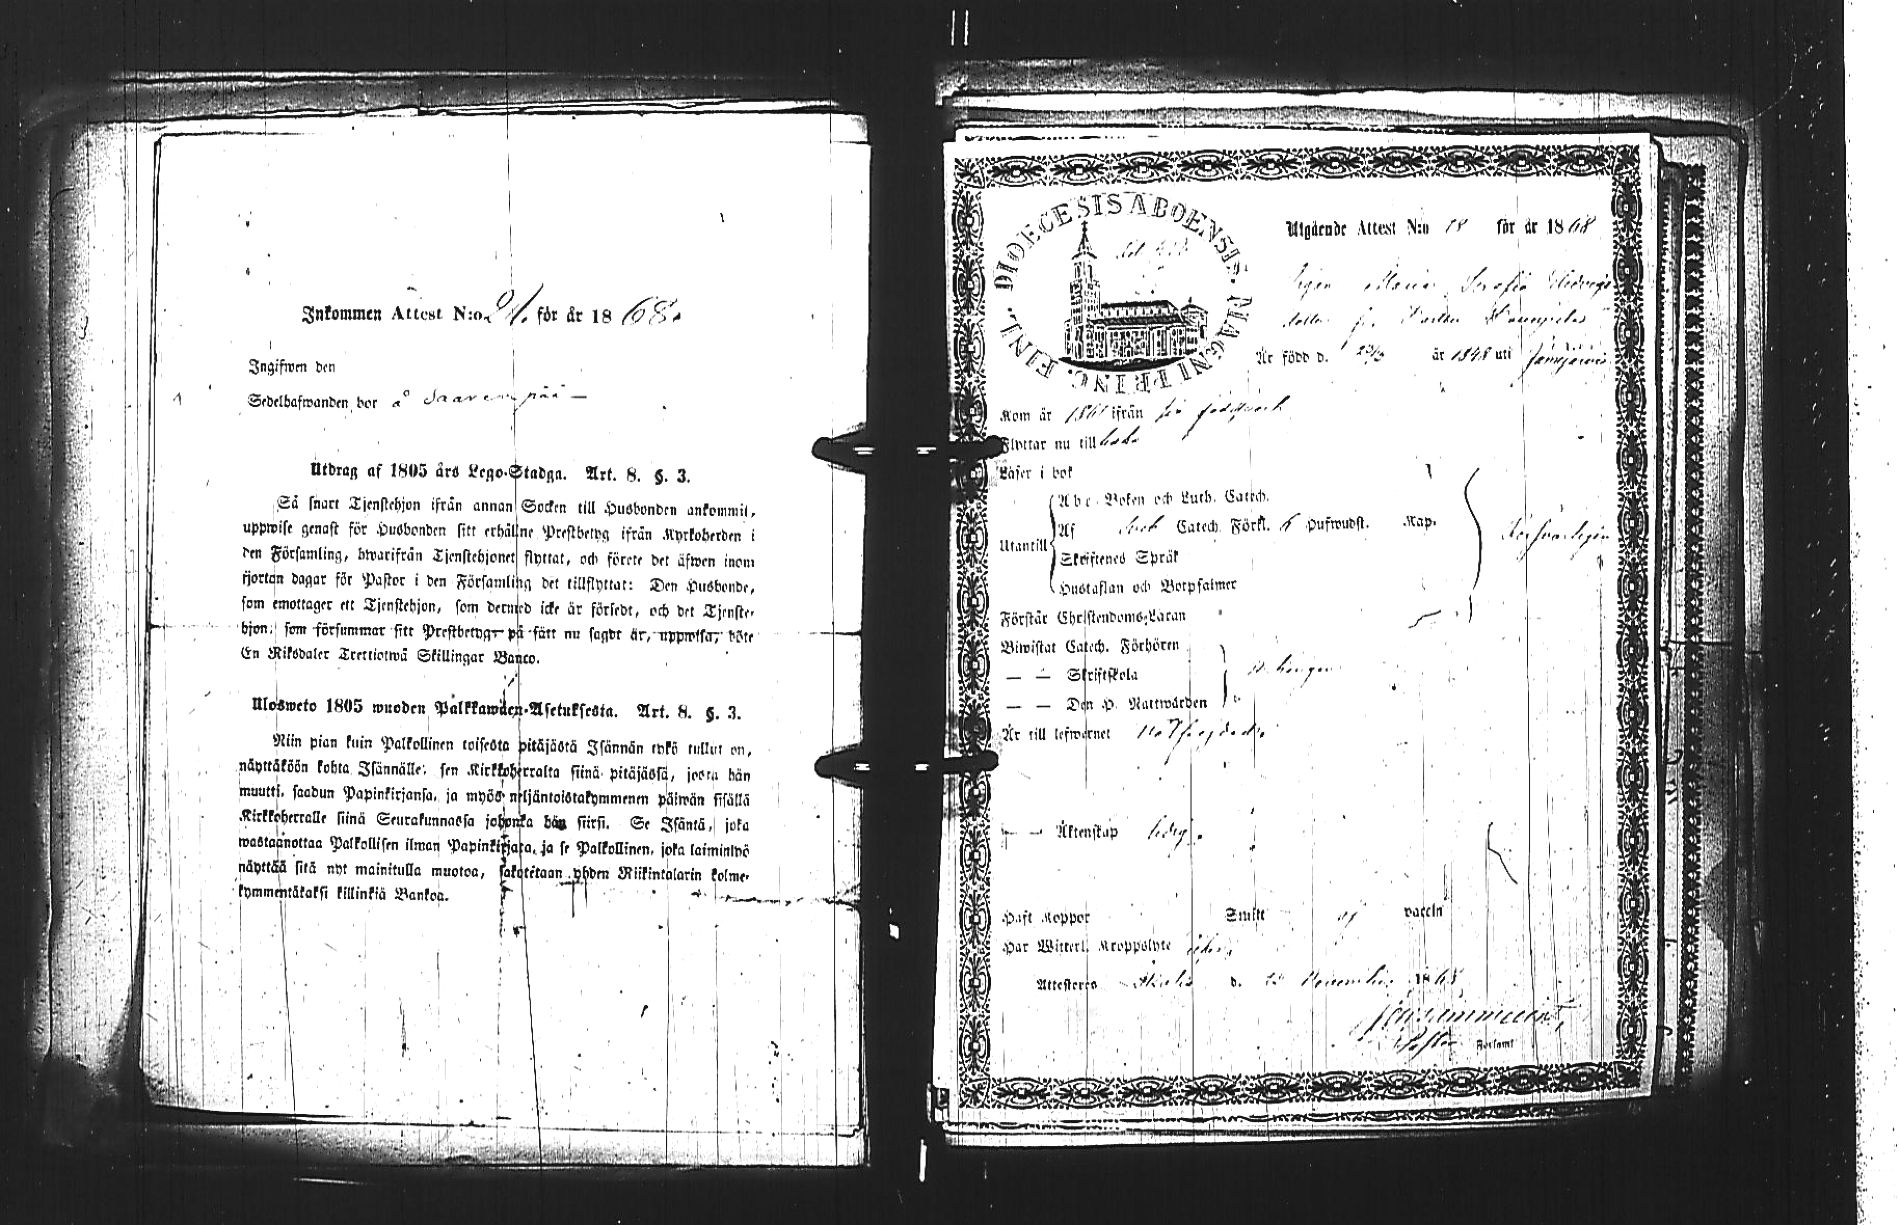 Inkommen Attest N:o 21. för år 1868.
Ingifwen den
Sedelhafwanden bor å Saarenpää
Utdrag af 1805 års Lego-Stadga. Art. 8. §. 3.
Så snart Tjenstehjon ifrån annan Socken till Husbonden ankommit,
uppwise genast för Husbonden sitt erhållne Prestbetyg ifrån Kyrkoherden i
den Församling, hwarifrån Tjenstehjonet flyttat, och förete det äfwen inom
fjortan dagar för Pastor i den Församling det tillflyttat: Den Husbonde,
som emottager ett Tjenstehjon, som dermed icke är försedt, och det Tjenste-
hjon, som försummar sitt Prestbetyg på sätt nu sagdt är, uppwisa, böte
En Riksdaler Trettiotwå Skillingar Banco.
Ulosweto 1805 wuoden Palkkawäen-Asetuksesta. Art. 8. §. 3.
Niin pian kuin Palkollinen toisesta pitäjästä Isännän tykö tullut on,
näyttäköön kohta Isännälle, sen Kirkkoherralta siinä pitäjässä, josta hän
muutti, saadun Papinkirjansa, ja myös neljäntoistakymmenen päiwän sisällä
Kirkkoherralle siinä Seurakunnassa johonka hän siirsi. Se Isäntä, joka
wastaanottaa Palkollisen ilman Papinkirjata, ja se Palkollinen, joka laiminlyö
näyttää sitä nyt mainitulla muotoa, sakotetaan yhden Riikintalarin kolme-
kymmentäkaksi killinkiä Bankoa.
DIOECESIS ABOENSIS. MAGNI PRINC. FINL.
Utgående Attest N:o 18 för år 1868
Pigan Maria Serafia Hedvigs
dotter
Är född d. 23/3 år 1848 uti Jämijärvi
Kom år 1861 ifrån
Flyttar nu till
Läser i bok
Abc-Boken och Luth. Catech.
Utantill
Af Catech. Förkl. 6 Hufwudst. Kap.
Försvarligen
Skriftenes Språk
Hustaflan och Botpsalmer
Förstår Christendoms-Läran
Biwistat Catech. Förhören
— — Skriftskola
— — Den H. Nattwarden
Är till lefwernet
— — Äktenskap ledig
Haft Koppor Smitt af vaccin
Har Witterl. Kroppslyte
Attesteres d. November 1868
Pastor Församl